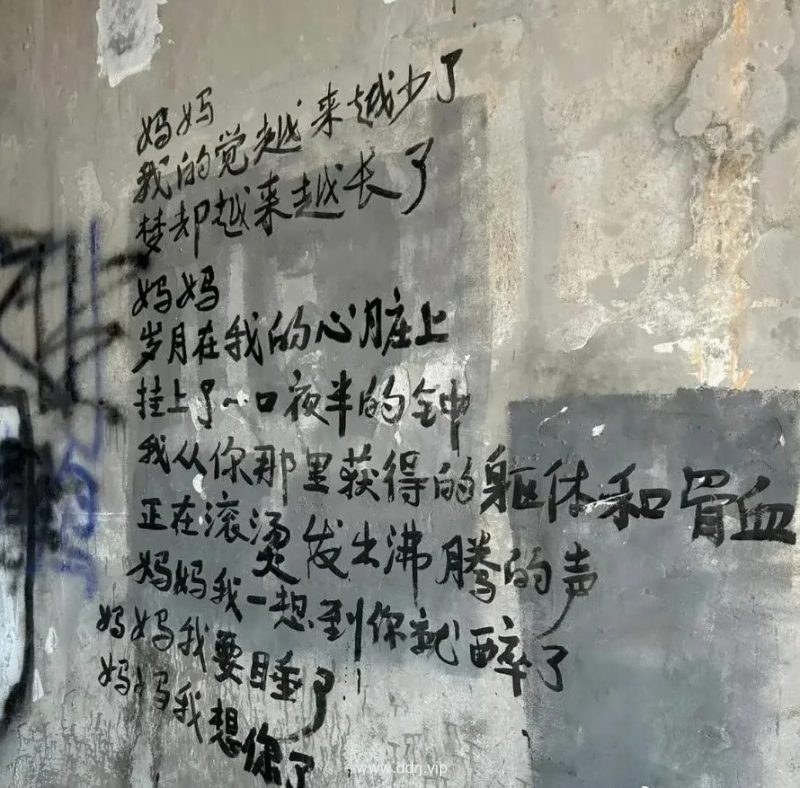 妈妈
我的觉越来越少了
梦却越来越长了
妈妈
岁月在我的心脏上
挂上了一口夜半的钟
我从你那里获得的躯体和骨血
正在滚烫发出沸腾的声
妈妈我一想到你就醉了
妈妈我要睡了
妈妈我想你了
www.ddrj.vip